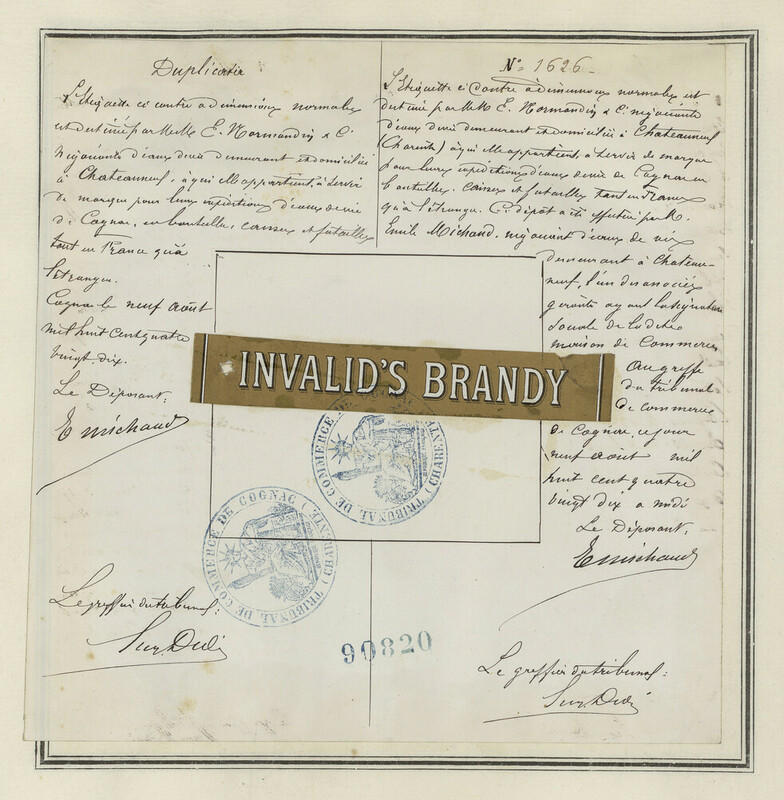 Duplicata
L'étiquette ci contre a dimensions normales
est destinée par MM. E. Normandin & Cie
négociants d'eaux de vie demeurant et domiciliés
à Chateauneuf, à qui elle appartient, à servir
de marque pour leurs expéditions d'eaux de vie
de Cognac, en bouteilles, caisses et futailles
tant en France qu'à
l'étranger.
Cognac le neuf août
mil huit cent quatre
vingt dix.
Le Déposant,
E Michaud
Le greffier du tribunal:
N° 1626
L'étiquette ci contre a dimensions normales est
destinée par MM. E. Normandin & Cie négociants
d'eaux de vie demeurant et domiciliés à Chateauneuf
(Charente) à qui elle appartient, à servir de marque
pour leurs expéditions d'eaux de vie de Cognac en
bouteilles, caisses et futailles tant en France
qu'à l'étranger. Ce dépôt a été effectué par M.
Emile Michaud, négociant d'eaux de vie
demeurant à Chateau-
neuf, l'un des associés
gérants ayant la signature
sociale de la dite
maison de Commerce
Au greffe
du tribunal
de commerce
de Cognac, ce jour
neuf août mil
huit cent quatre
vingt dix a midi
Le Déposant,
E Michaud
Le greffier du tribunal:
INVALID'S BRANDY
TRIBUNAL DE COMMERCE DE COGNAC (CHARENTE)
TRIBUNAL DE COMMERCE DE (CHARENTE)
90820